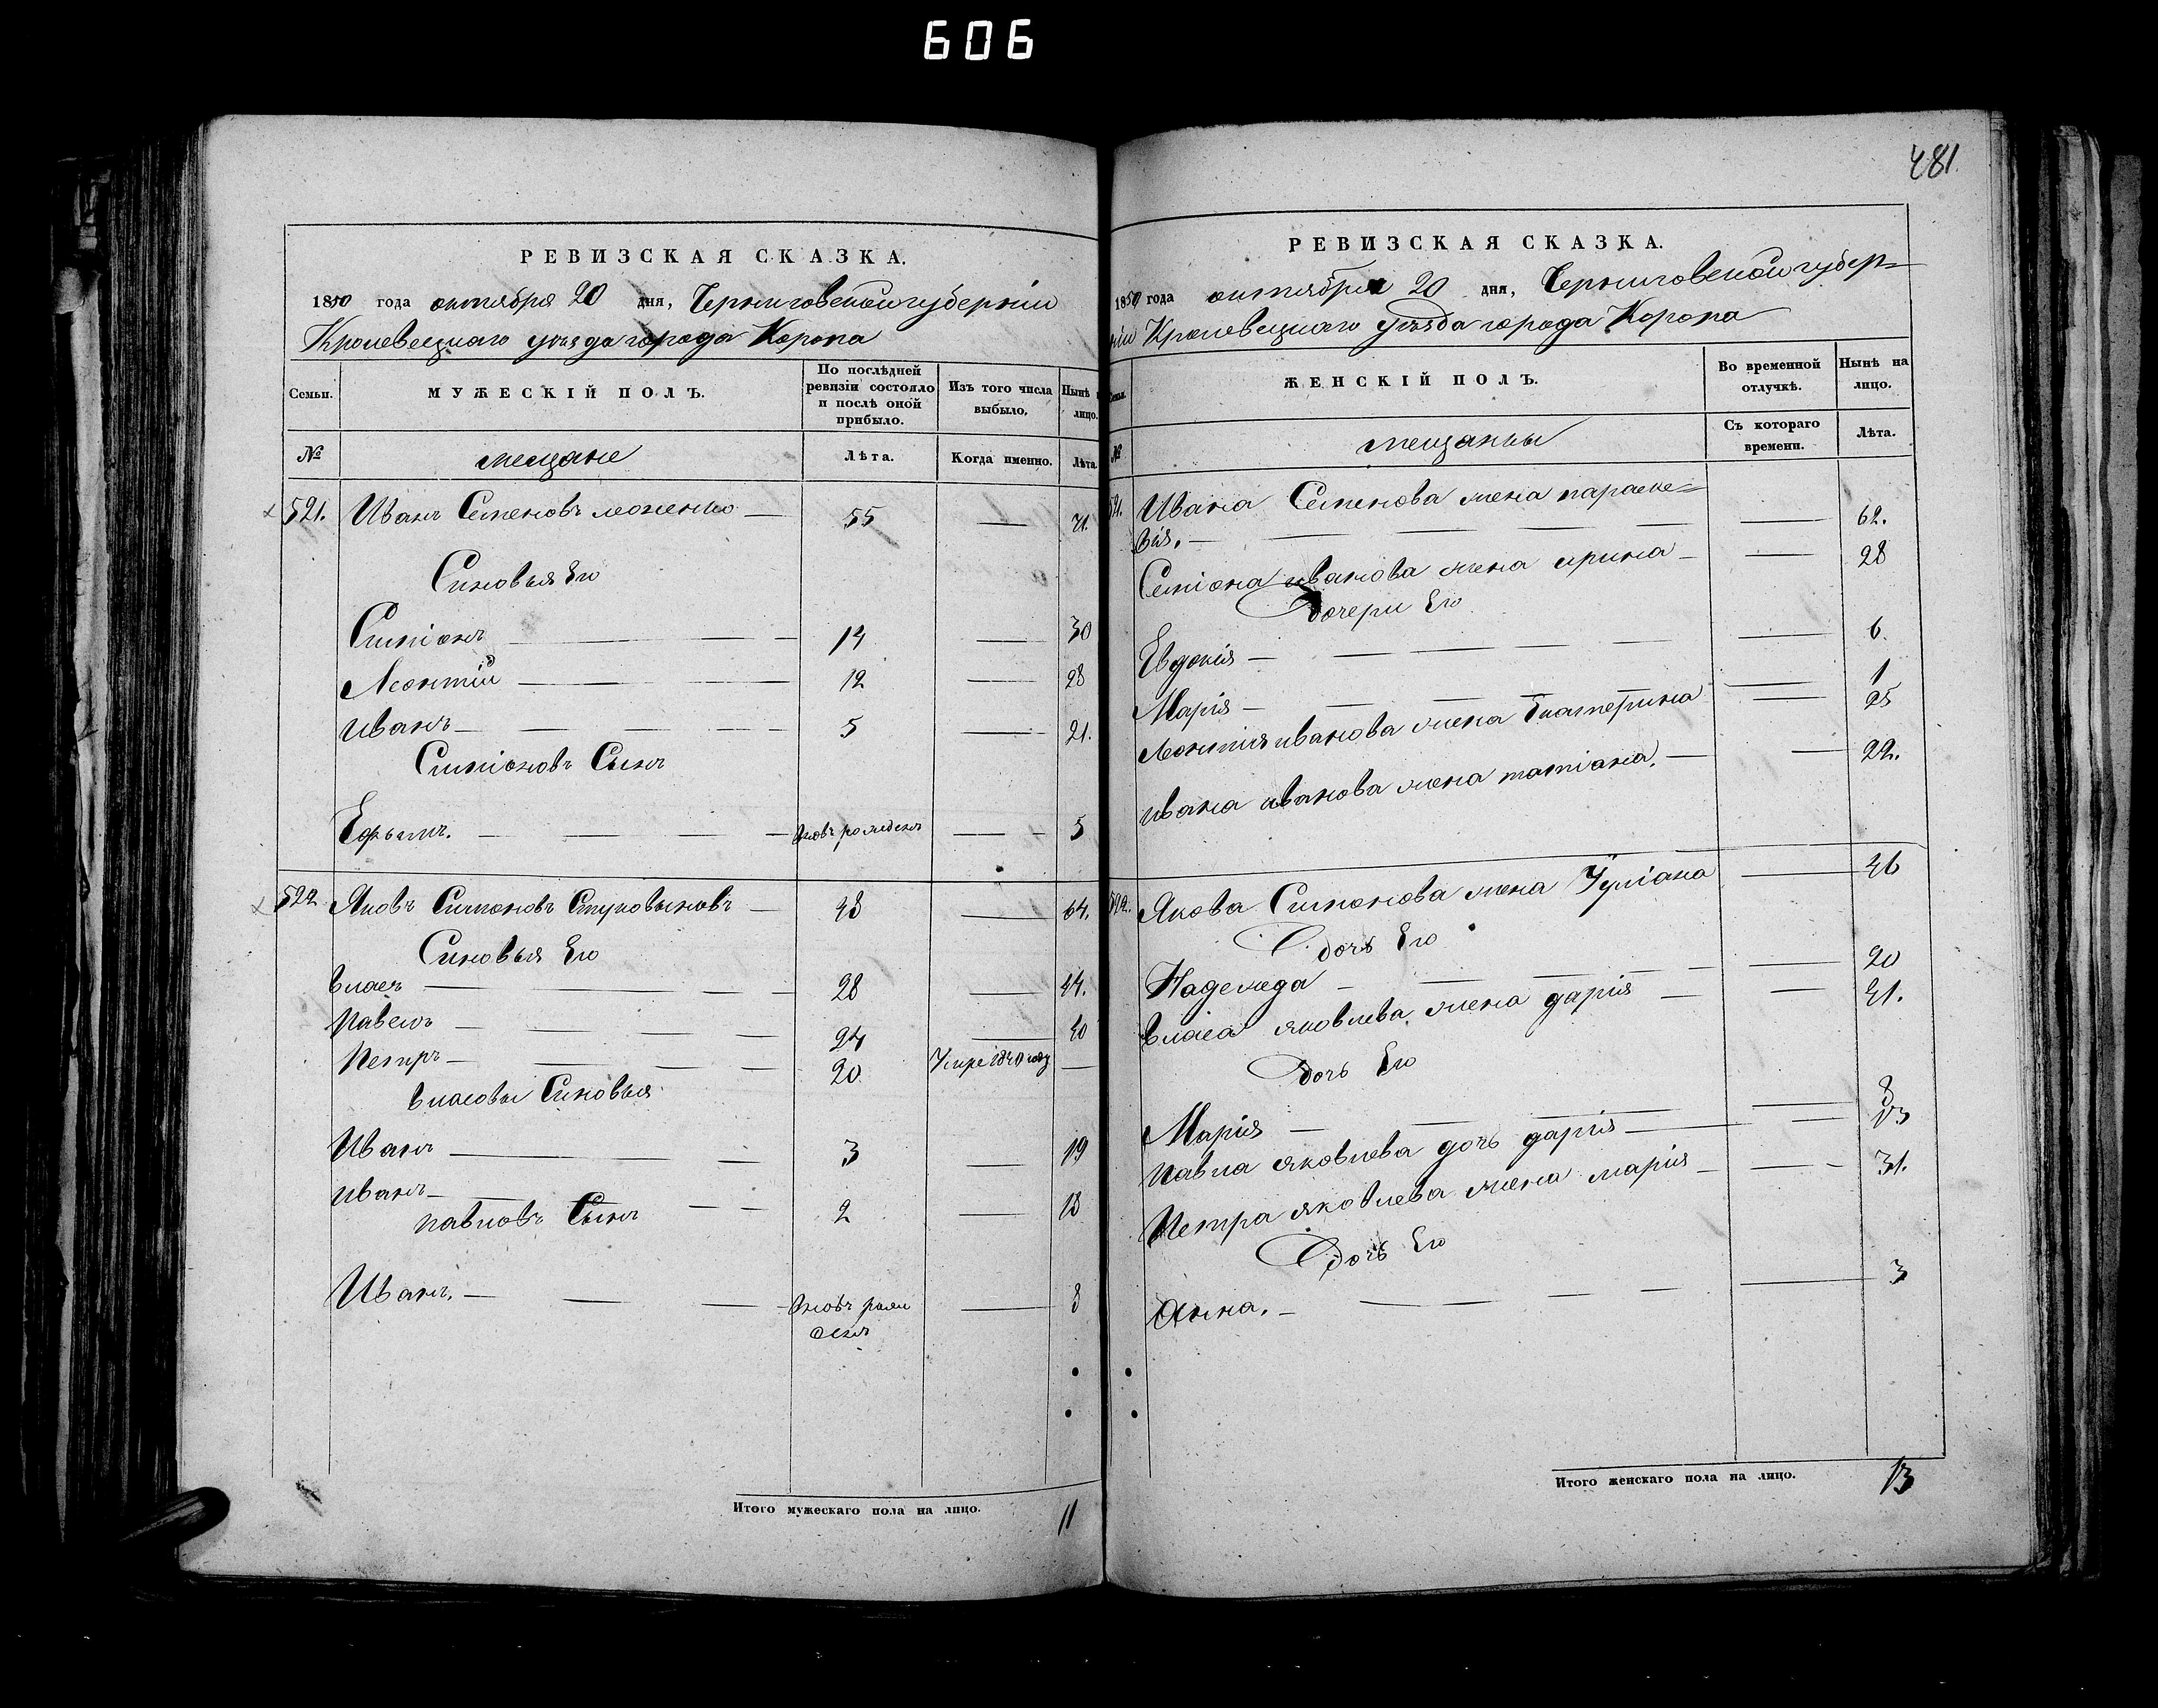 606
РЕВИЗСКАЯ СКАЗКА.
1850 года октября 20 дня, Черниговской губерніи
Кролевецкаго уѣзда города Коропа
Семьи. МУЖЕСКІЙ ПОЛЪ. По послѣдней ревизіи состояло и послѣ оной прибыло. Изъ того числа выбыло. Нынѣ лицо.
№ мещане Лѣта. Когда именно. Лѣта
521. Иванъ Семеновъ 55 — 71.
Синовья Его
Симіонъ 14 — 30
Леонтій 12 — 28
иванъ 5 — 21.
Симіоновъ Сынъ
Ефимъ. вновь рожденъ — 5
522 Яковъ Симоновъ 48 — 64.
Синовья Его
власъ 28 — 44.
Павелъ 24 — 40
Петръ 20 Умре 1840 году —
власовы Синовья
Иванъ 3 — 19
иванъ 2 — 18
павловъ Сынъ
Иванъ. вновь рож
денъ — 8
Итого мужескаго пола на лицо. 11
481
РЕВИЗСКАЯ СКАЗКА.
1850 года октября 20 дня, Черниговской губер=
ніи Кролевецкаго уѣзда города Коропа
ЖЕНСКІЙ ПОЛЪ. Во временной отлучкѣ. Нынѣ на лицо.
№ мещанки Съ котораго времени. Лѣта.
521. Ивана Семенова жена параске=
вія. — 62.
Семіона иванова жена ирина — 28
Дочери Его
Евдокія — 6.
Марія — 1
Леонтія иванова жена Екатерина — 25
ивана иванова жена татіана. — 22.
522. Якова Симонова жена Уліана — 46
Дочь Его
Надежда — 20
власа яковлева жена дарія — 41.
Дочь Его
Марія — 8
павла яковлева дочь дарія — 13
Петра яковлева жена марія — 31.
Дочь Его
Анна. — 3
Итого женскаго пола на лицо. 13